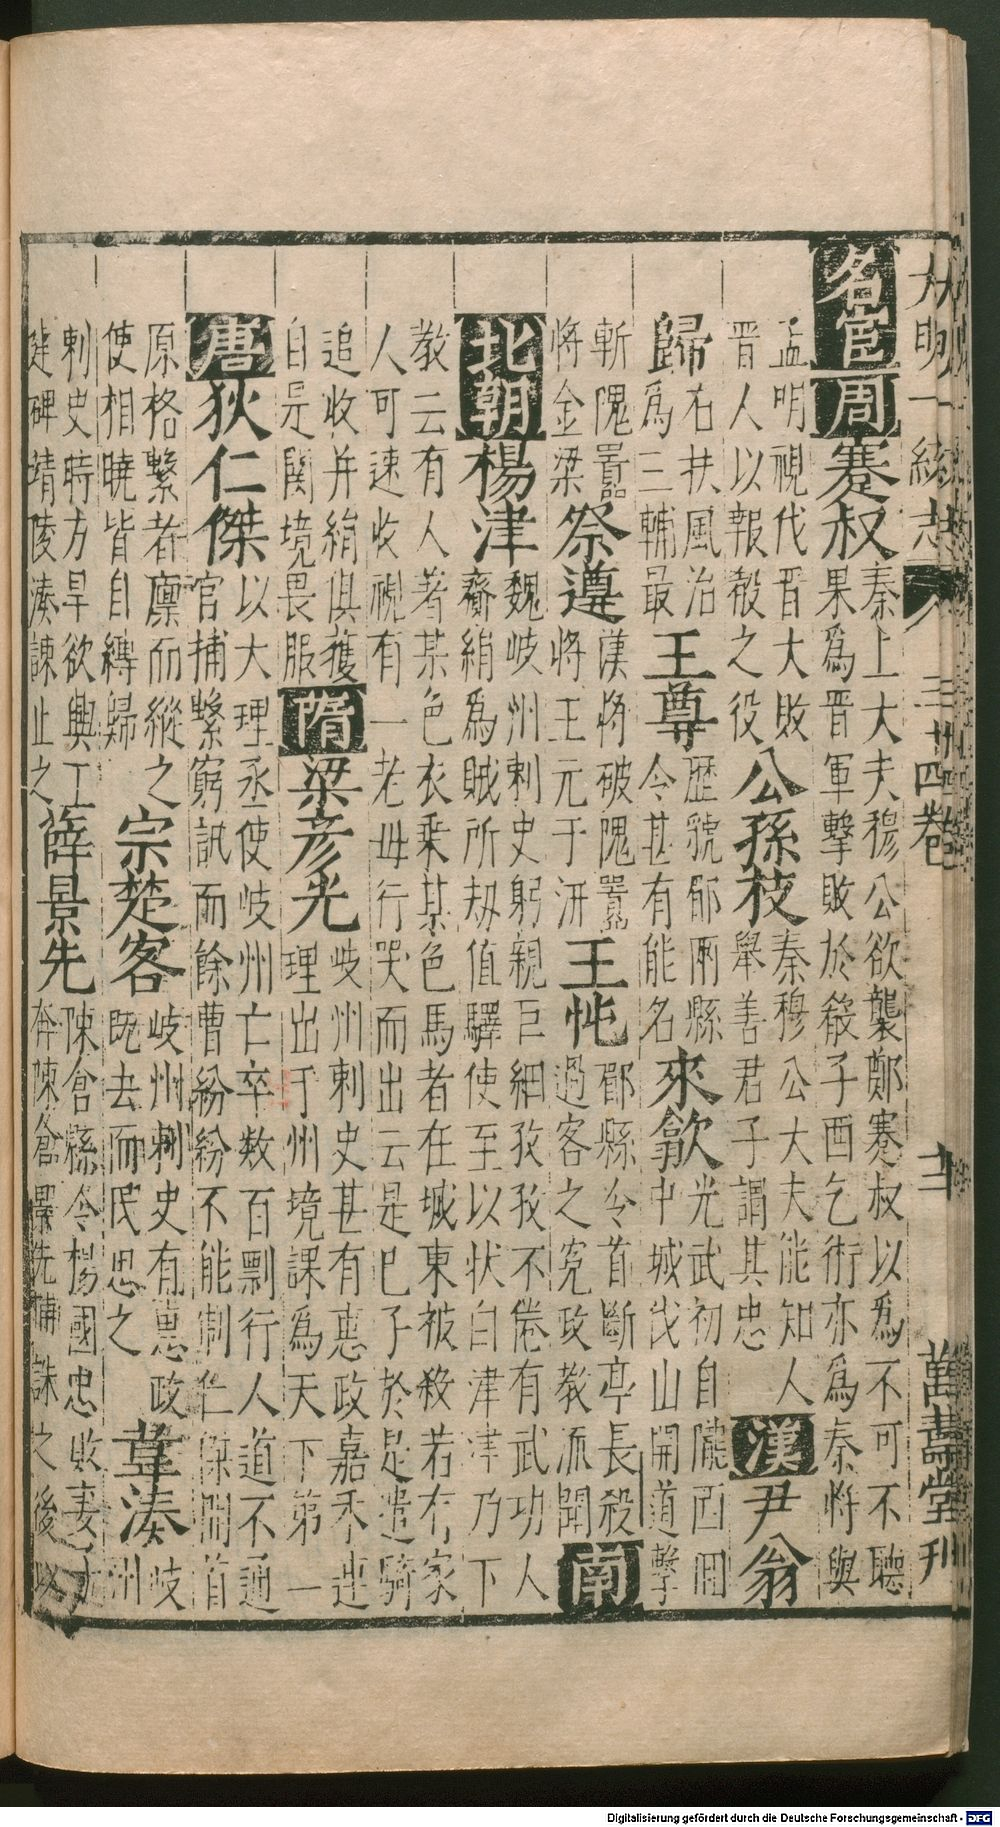 大明一統志 三十四卷 十二 萬壽堂刊
名宦 周 蹇叔
秦上大夫穆公欲襲鄭蹇叔以爲不可不聽
果爲晋軍擊敗於殽子西乞術亦爲秦將與
孟明視伐晋大敗
晋人以報殽之役
公孫枝
秦穆公大夫能知人
舉善君子謂其忠
漢 尹翁
歸
右扶風治
爲三輔最
王尊
歷虢郿兩縣
令甚有能名
來歙
光武初自隴西囬
中城伐山開道擊
斬隗囂
將金梁
祭遵
漢將破隗囂
將王元于汧
王忳
郿縣令首斷亭長殺
過客之寃政教流聞
南
北朝 楊津
魏岐州刺史躬親巨細孜孜不倦有武功人
齎絹爲賊所刼值驛使至以状白津津乃下
教云有人著某色衣乗某色馬者在城東被殺若有家
人可速收視有一老母行哭而出云是己子於是遣騎
追收并絹俱獲
自是闔境畏服
隋 梁彦光
岐州刺史甚有惠政嘉禾連
理出于州境課爲天下第一
唐 狄仁傑
以大理丞使岐州亡卒数百剽行人道不通
官捕繫窮訊而餘曹紛紛不能制仁傑開首
原格繫者廪而縱之
使相曉皆自縛歸
宗楚客
岐州刺史有惠政
既去而民思之
韋湊
岐
州
刺史時方旱欲興工
建碑靖陵湊諫止之
薛景先
陳倉縣令楊國忠敗妻女
奔陳倉景先捕誅之後以
Digitalisierung gefördert durch die Deutsche Forschungsgemeinschaft - DFG